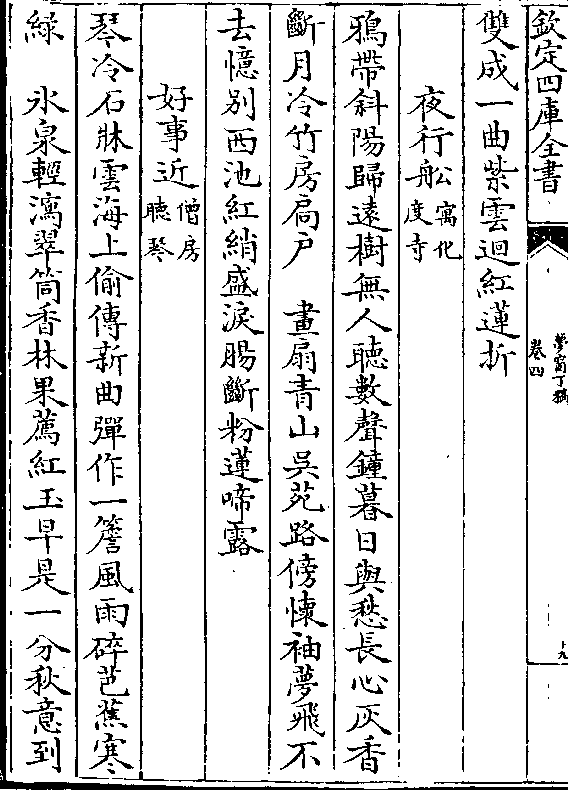 欽定四庫全書
夢窗丁稿
卷四
十九
雙成一曲紫雲迴紅蓮折
夜行船寓化度寺
鴉帶斜陽歸遠樹無人聽數聲鐘暮日與愁長心灰香
斷月冷竹房扃戶　畫扇青山吳苑路傍懷袖夢飛不
去憶別西池紅綃盛淚腸斷粉蓮啼露
好事近僧房聽琴
琴冷石牀雲海上偷傳新曲彈作一簷風雨碎芭蕉寒
綠　氷泉輕瀉翠筒香林果薦紅玉早是一分秋意到